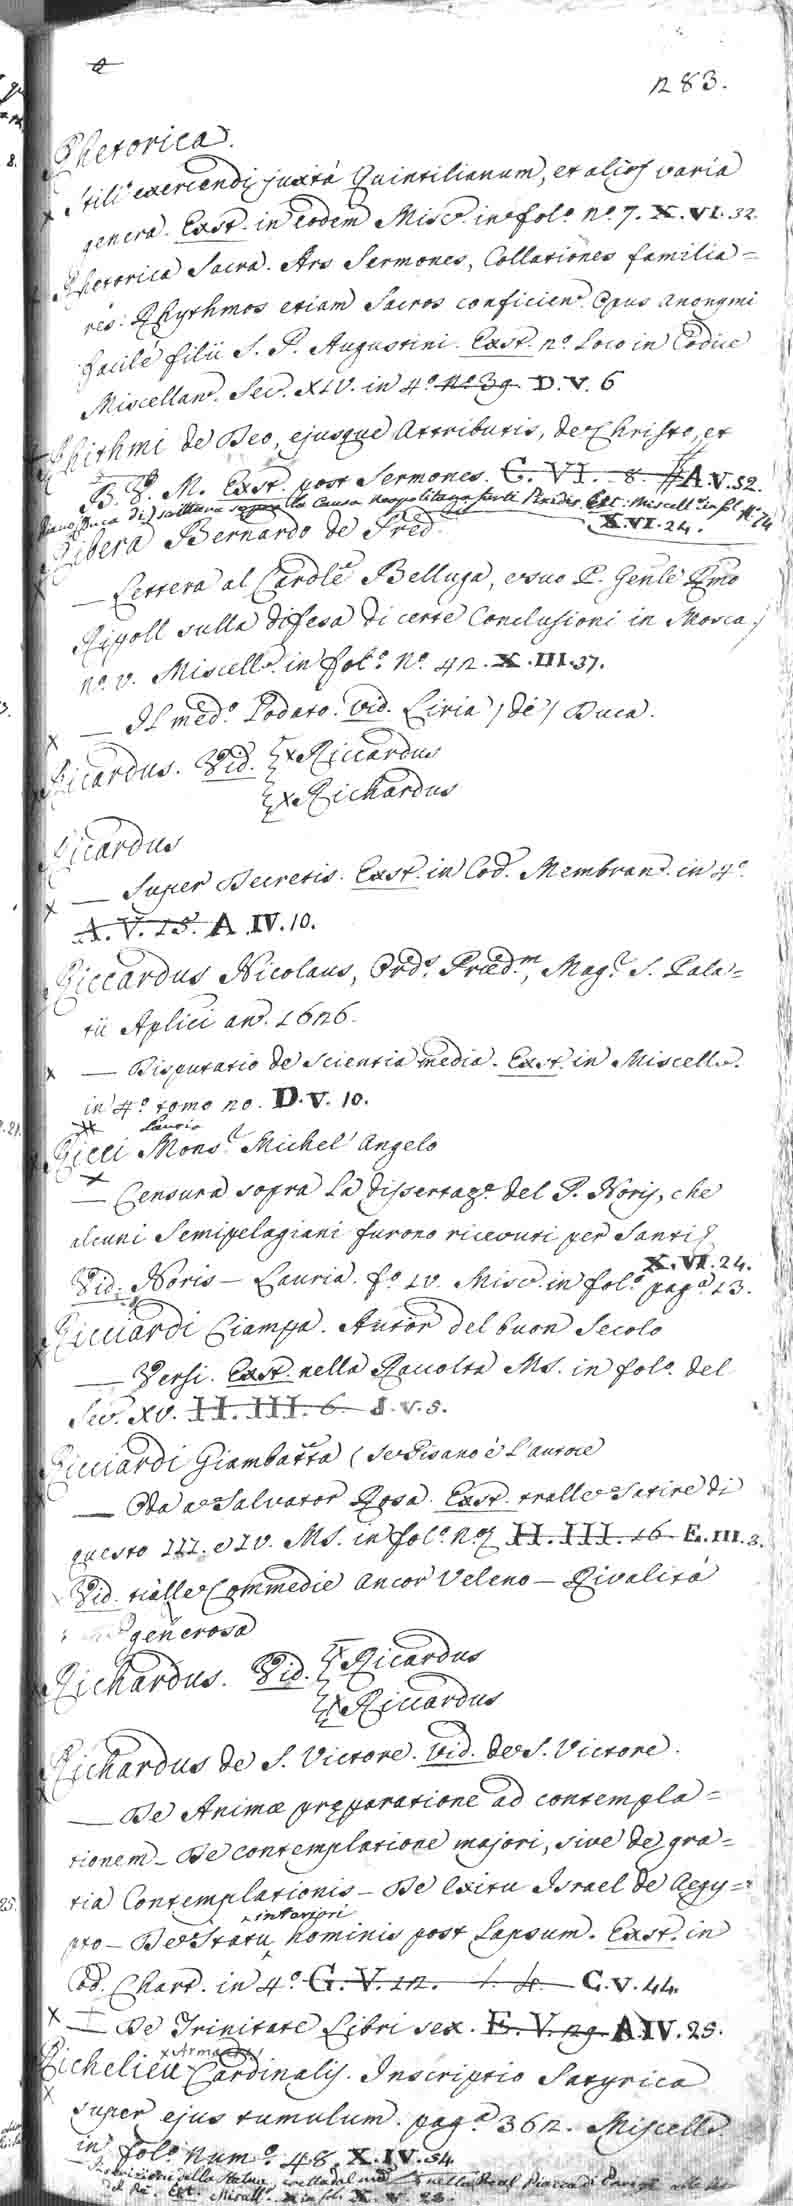 283.
Rhetorica.
Stili exercendi juxta Quintilianum, et alios varia
genera. Exst. in eodem Misc. in fol.º nº. 7. X.VI.32.
Rhetorica Sacra. Ars Sermones, Collationes familia=
res: Rhythmos etiam Sacros conficien. Opus anonymi
facilè filii S. P. Augustini. Exst. nº. Loco in Codice
Miscellan. Sec. XIV. in 4º. nº 39 D.V.6
Rhithmi de Deo, ejusque Attributis, de Christo, et
B. V. M. Exst. post Sermones. C. VI. 8. A.V.32.
Duca di scrittura sopra la Causa neapolitana Ext. Miscell. in fol. Nº 74
X.VI.24.
Ribera Bernardo de Pred.
— Lettera al Cardle Belluga, e suo P. Genle Rmo
Ripoll sulla difesa di certe Conclusioni in Mosca
nº. v. Miscell. in fol.º Nº. 42. X.III.37.
— Il med.º Lodato. Vid. Liria / de / Duca.
Ricardus. Vid. Riccardus
Richardus
Ricardus
— Super Decretis. Exst. in Cod. Membran. in 4º.
A. V. 15. A.IV.10.
Riccardus Nicolaus, Ord.s Præd.m, Mag.r S. Pala=
tii Aplici an. 1626.
— Disputatio de scientia media. Exst. in Miscell.
in 4º. tomo 20. D.V.10.
Lauria
Ricci Mons.r Michel' Angelo
— Censura sopra la dissertaz.e del P. Noris, che
alcuni Semipelagiani furono ricevuti per Santi
X.VI.24.
Vid. Noris — Lauria. fº. IV. Misc. in fol.º pag.a 13.
Ricciardi Ciampa. Autor del buon Secolo
— Versi. Exst. nella Raccolta MS. in fol.º del
Sec. XV. H. III. 6. J.V.5.
Ricciardi Giambatta (se Pisano è l'autore
— Oda a Salvator Rosa. Exst. tralle Satire di
questo III. e IV. MS. in fol.º H. III. 16 E.III.3.
Vid. tralle Commedie ancor Veleno — Rivalità
generosa
Richardus. Vid. Ricardus
Riccardus
Richardus de S. Victore. Vid. de S. Victore.
— De Animæ præparatione ad contempla=
tionem — De contemplatione majori, sive de gra=
tia Contemplationis — De Exitu Israel de Aegy=
pto — De Statu interiori hominis post Lapsum. Exst. in
Cod. Chart. in 4º G. V. 12. C.V.44.
— De Trinitate Libri sex. E. V. 29 A.IV.25.
Richelieu Armand Cardinalis. Inscriptio Satyrica
super ejus tumulum. pag.a 362. Miscell.
in fol.º num.º 48. X.IV.54
Inscrizione della Statua nella Real Piazza di Parigi
Ext. Miscell. in fol. X. V. 23.